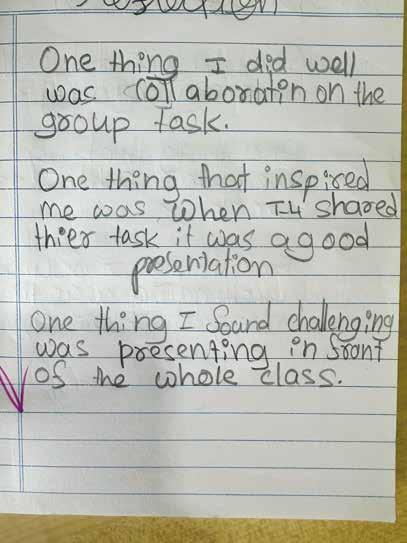 One thing I did well
was collaboratin on the
group task.
One thing that inspired
me was when T4 shared
thier task it was a good
presentation
One thing I found challenging
was presenting in front
of the whole class.